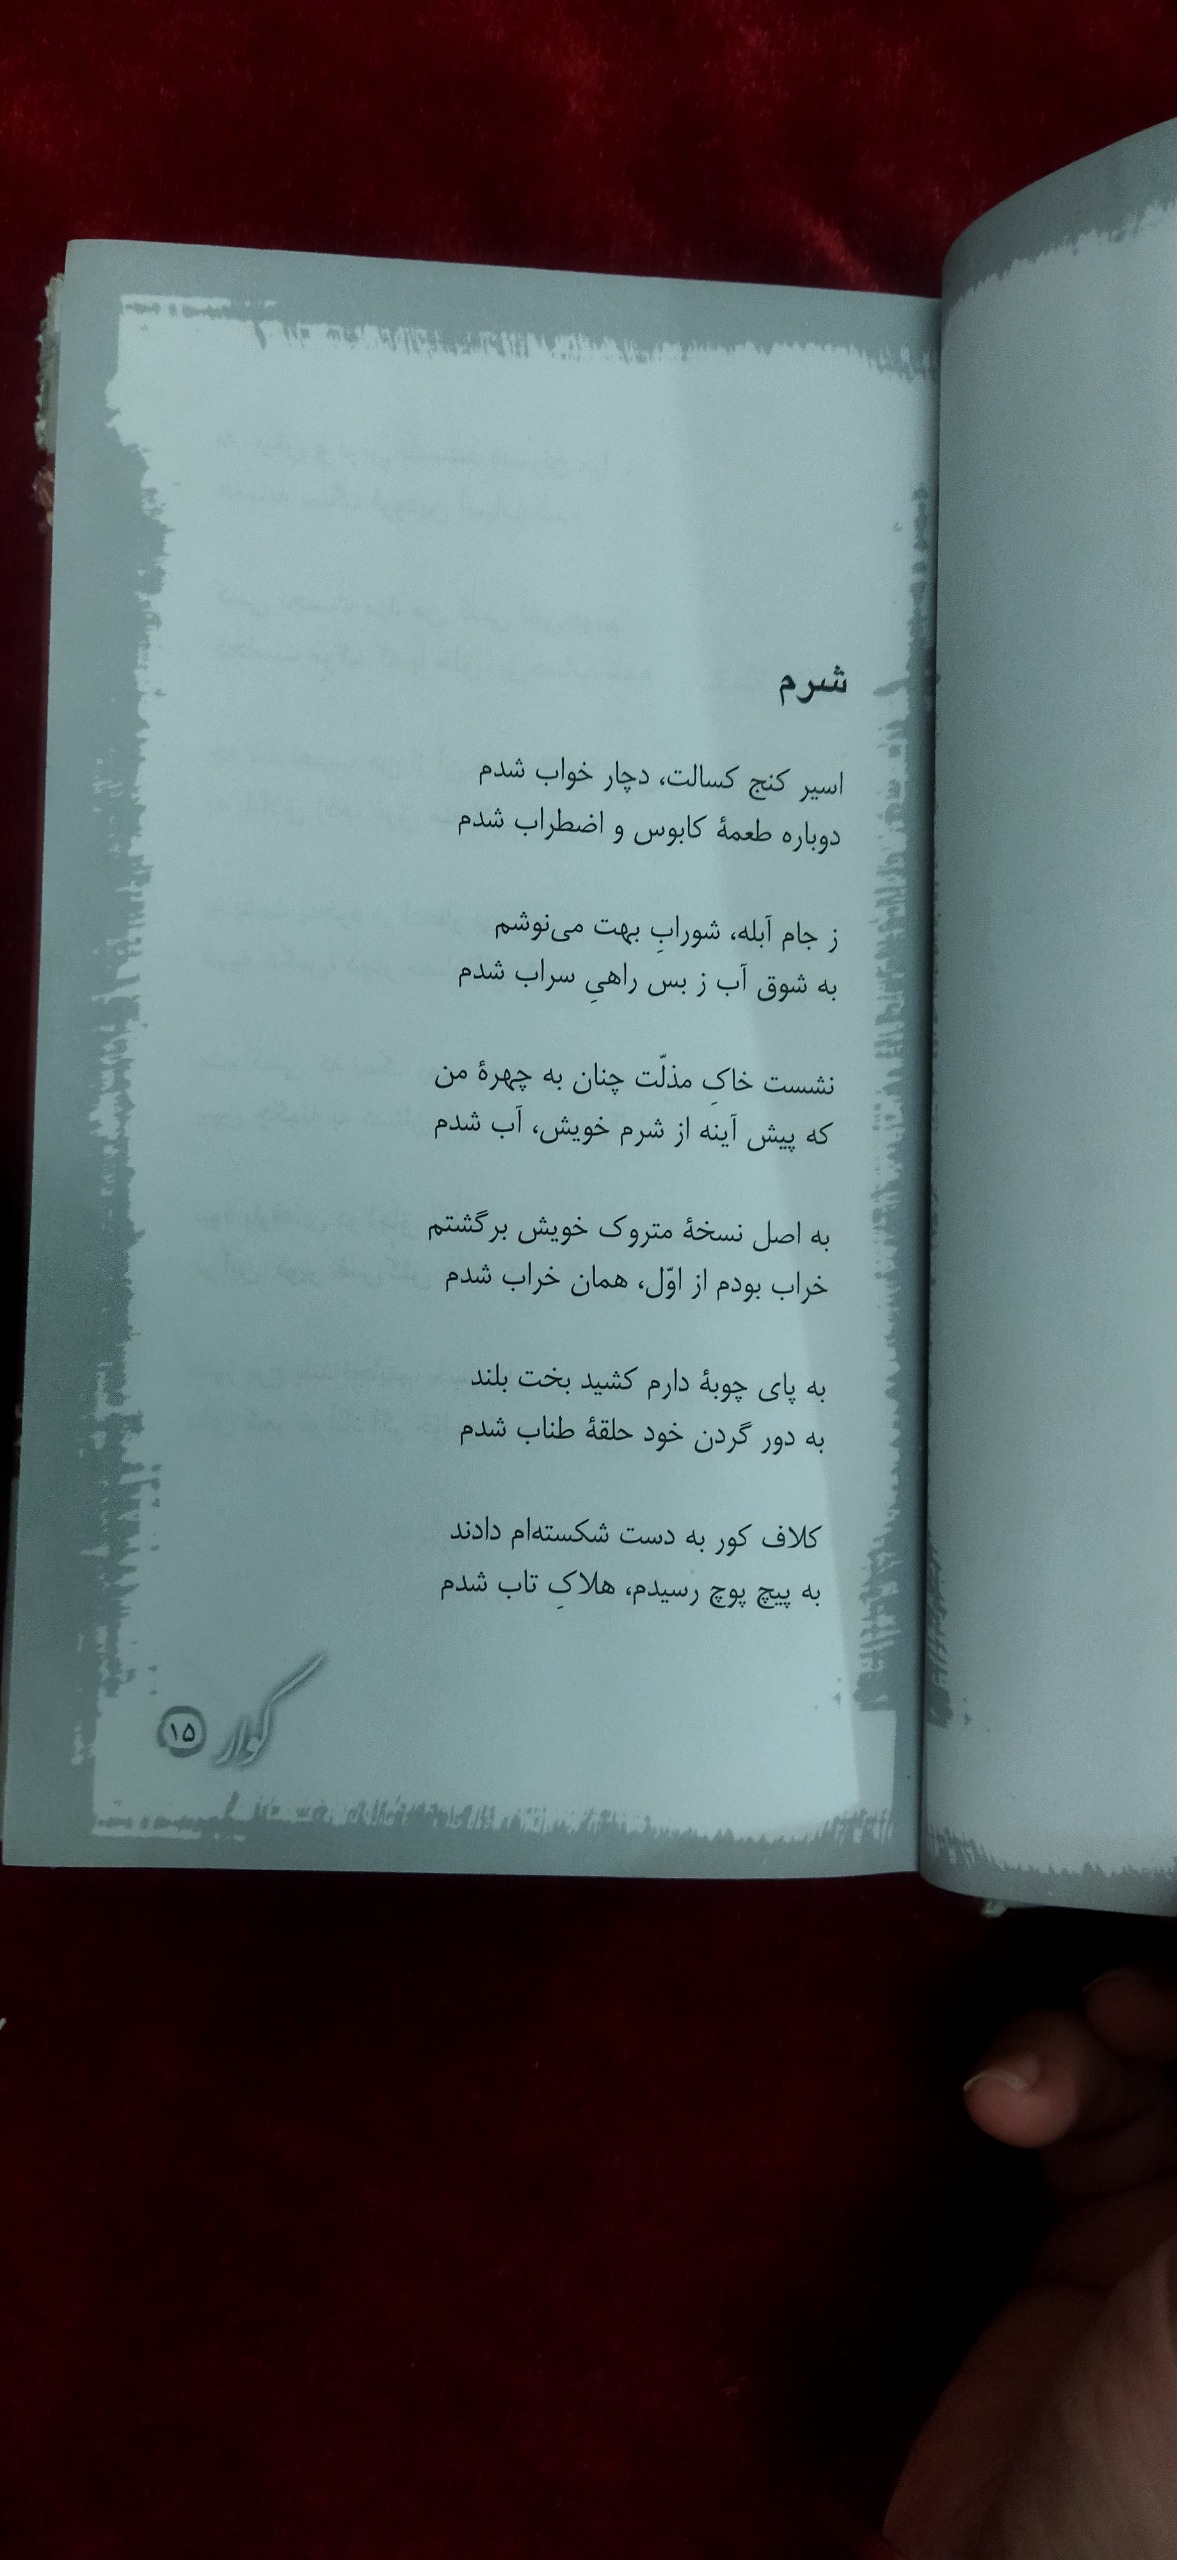 شرم
اسیر کنج کسالت، دچار خواب شدم
دوباره طعمهٔ کابوس و اضطراب شدم
ز جام آبله، شورابِ بهت می‌نوشم
به شوق آب ز بس راهیِ سراب شدم
نشست خاکِ مذلّت چنان به چهرهٔ من
که پیش آینه از شرم خویش، آب شدم
به اصل نسخهٔ متروک خویش برگشتم
خراب بودم از اوّل، همان خراب شدم
به پای چوبهٔ دارم کشید بخت بلند
به دور گردن خود حلقهٔ طناب شدم
کلاف کور به دست شکسته‌ام دادند
به پیچ پوچ رسیدم، هلاکِ تاب شدم
گوار ۱۵